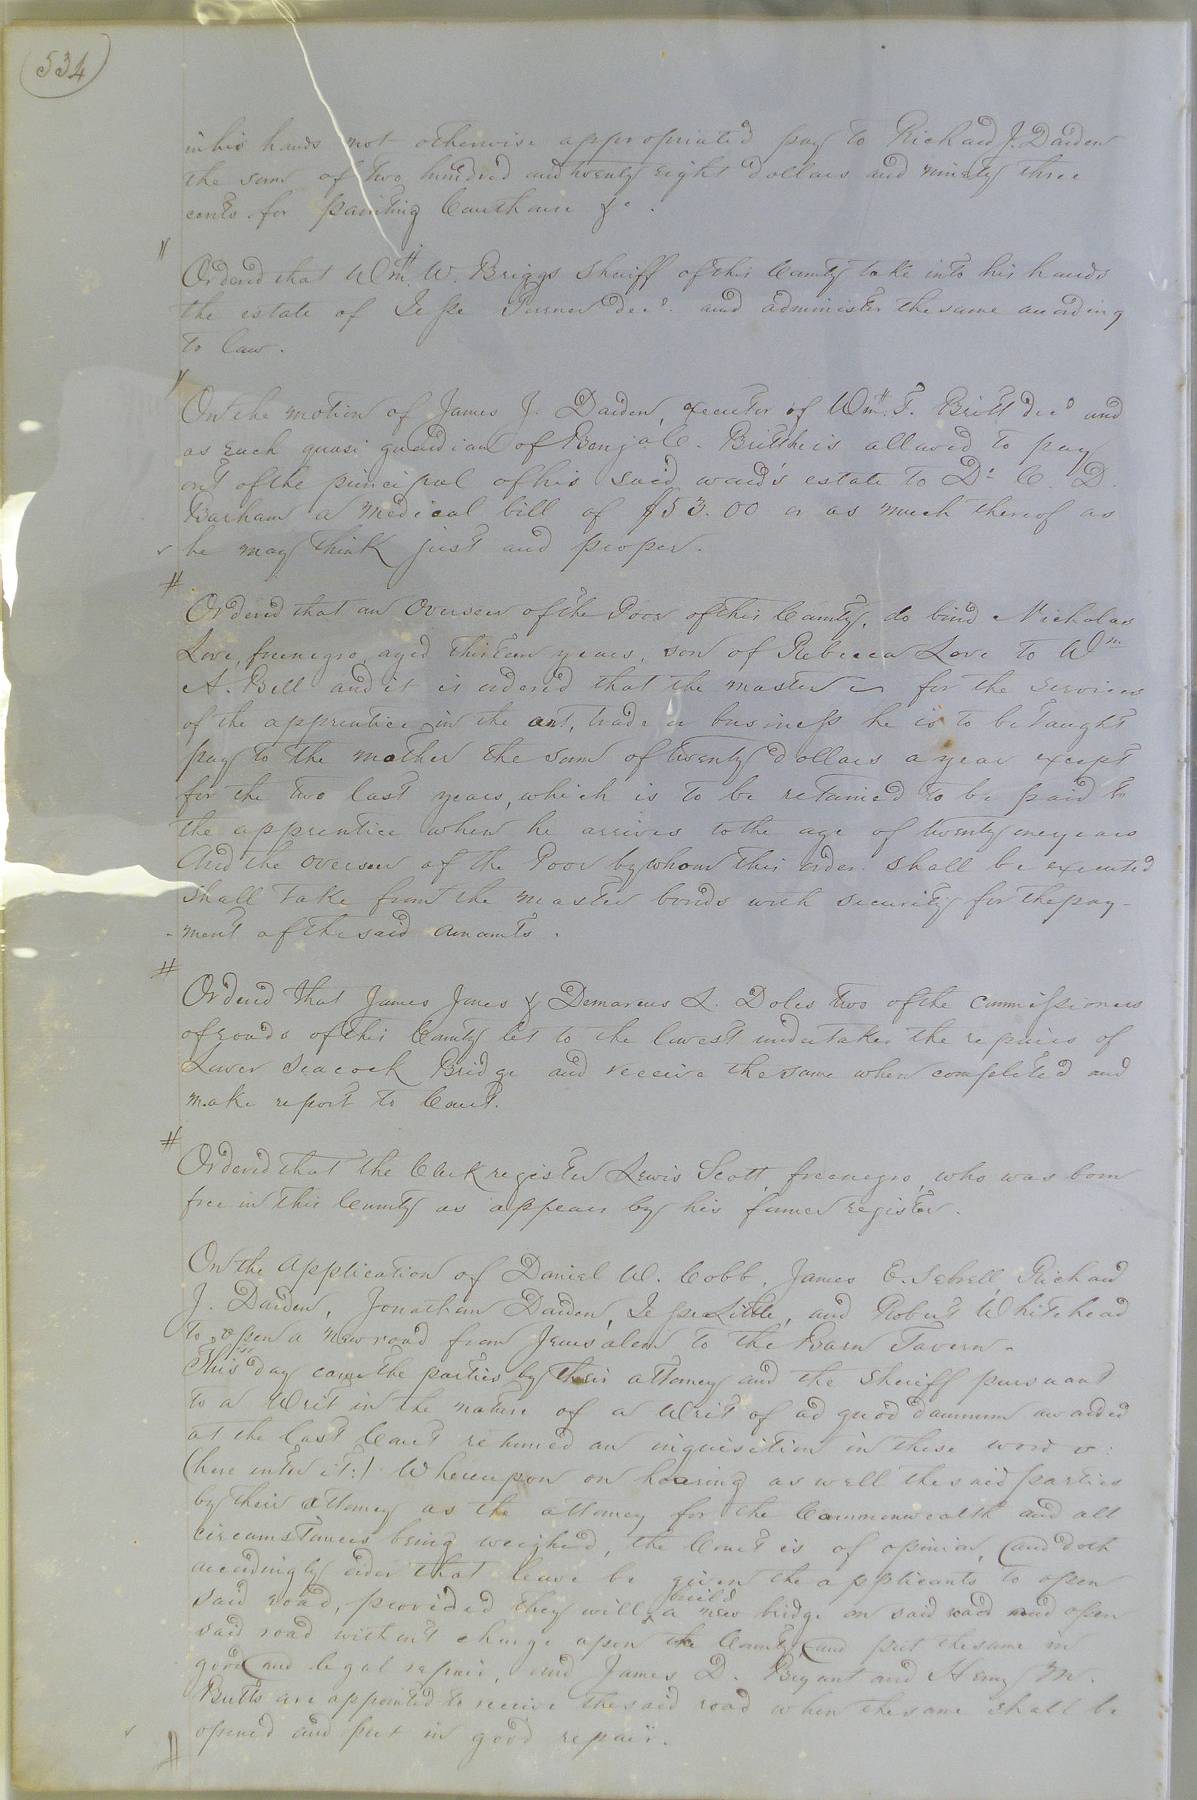 534
in his hands not otherwise appropriated pay to Richard J. Darden
the sum of two hundred and twenty eight dollars and ninety three
cents for painting Courthouse &c.
Ordered that Wm. W. Briggs Sheriff of this County take into his hands
the estate of Jesse Turner decd. and administer the same according
to law.
On the motion of James J. Darden, executor of Wm. T. Britt decd and
as such quasi guardian of Benja. C. Britt he is allowed to pay
out of the principal of his said ward's estate to Dr. C. D.
Barham a medical bill of $53.00 or as much thereof as
he may think just and proper.
Ordered that an Overseer of the Poor of this County, do bind Nicholas
Love, free negro, aged thirteen years, son of Rebecca Love to Wm
A. Bell and it is ordered that the master for the services
of the apprentice in the art, trade or business he is to be taught
pay to the mother the sum of twenty dollars a year except
for the two last years, which is to be retained to be paid to
the apprentice when he arrives to the age of twenty one years
And the Overseer of the Poor by whom this order shall be executed
shall take from the master bonds with security for the pay-
ment of the said amounts.
Ordered that James Jones & Demarcus L. Doles two of the commissioners
of roads of this County let to the lowest undertaker the repairs of
Lower Seacock Bridge and receive the same when completed and
make report to Court.
Ordered that the Clerk register Lewis Scott, free negro, who was born
free in this County as appears by his former register.
On the application of Daniel W. Cobb, James E. Sebrell Richard
J. Darden, Jonathan Darden, Jesse Little, and Robert Whitehead
to open a new road from Jerusalem to the Barn Tavern.
This day came the parties by their attorney and the Sheriff pursuant
to a Writ in the nature of a Writ of ad quod damnum awarded
at the last Court returned an inquisition in these words:
(here enter it:) Whereupon on hearing as well the said parties
by their attorney as the attorney for the Commonwealth and all
circumstances being weighed, the Court is of opinion, and doth
accordingly order that leave be given the applicants to open
said road, provided they will build a new bridge on said road and open
said road without charge upon the County, and put the same in
good and legal repair, and James D. Bryant and Henry M.
Butts are appointed to receive the said road when the same shall be
opened and put in good repair.